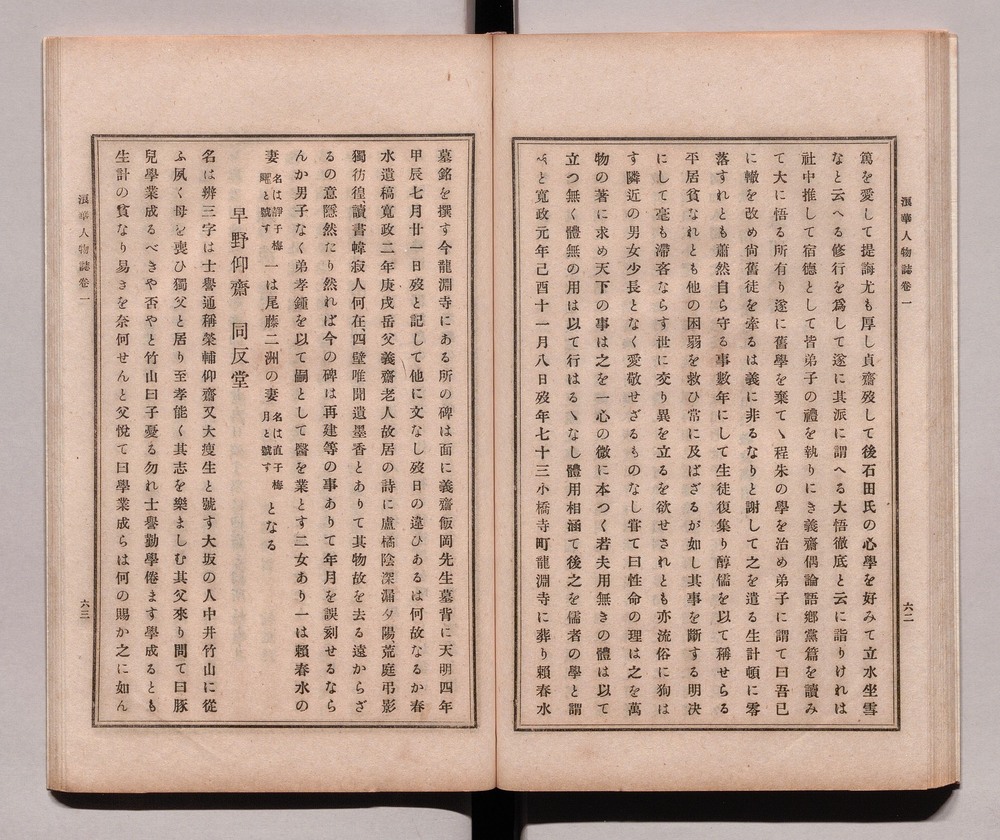 浪華人物誌卷一
六二
篤を愛して提誨尤も厚し貞齋歿して後石田氏の心學を好みて立水坐雪
なと云へる修行を爲して遂に其派に謂へる大悟徹底と云に詣りけれは
社中推して宿德として皆弟子の禮を執りにき義齋偶論語鄕黨篇を讀み
て大に悟る所有り遂に舊學を棄てゝ程朱の學を治め弟子に謂て曰吾已
に轍を改め尙舊徒を牽るは義に非るなりと謝して之を遣る生計頓に零
落すれとも蕭然自ら守る事數年にして生徒復集り醇儒を以て稱せらる
平居貧なれとも他の困弱を救ひ常に及ばざるが如し其事を斷する明決
にして毫も滯吝ならす世に交り異を立るを欲せされとも亦流俗に狥は
す隣近の男女少長となく愛敬せざるものなし嘗て曰性命の理は之を萬
物の著に求め天下の事は之を一心の微に本つく若夫用無きの體は以て
立つ無く體無の用は以て行はるゝなし體用相涵て後之を儒者の學と謂
べと寬政元年己酉十一月八日歿年七十三小橋寺町龍淵寺に葬り賴春水
墓銘を撰す今龍淵寺にある所の碑は面に義齋飯岡先生墓背に天明四年
甲辰七月廿一日歿と記して他に文なし歿日の違ひあるは何故なるか春
水遺稿寬政二年庚戌岳父義齋老人故居の詩に盧橘陰深漏夕陽荒庭弔影
獨彷徨讀書幃寂人何在四壁唯聞遺墨香とありて其物故を去る遠からざ
るの意隱然たり然れば今の碑は再建等の事ありて年月を誤刻せるなら
んか男子なく弟孝鍾を以て嗣として醫を業とす二女あり一は賴春水の
妻名は靜子梅颸と號す一は尾藤二洲の妻名は直子梅月と號すとなる
早野仰齋 同反堂
名は辨三字は士譽通稱榮輔仰齋又大瘦生と號す大坂の人中井竹山に從
ふ夙く母を喪ひ獨父と居り至孝能く其志を樂ましむ其父來り問て曰豚
兒學業成るべきや否やと竹山曰子憂る勿れ士譽勤學倦ます學成るとも
生計の貧なり易きを奈何せんと父悅て曰學業成らは何の賜か之に如ん
浪華人物誌卷一
六三